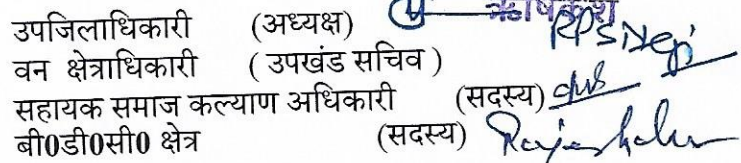 ऋषिकेश
उपजिलाधिकारी (अध्यक्ष)
वन क्षेत्राधिकारी ( उपखंड सचिव ) RPS Negi
सहायक समाज कल्याण अधिकारी (सदस्य)
बी0डी0सी0 क्षेत्र (सदस्य)